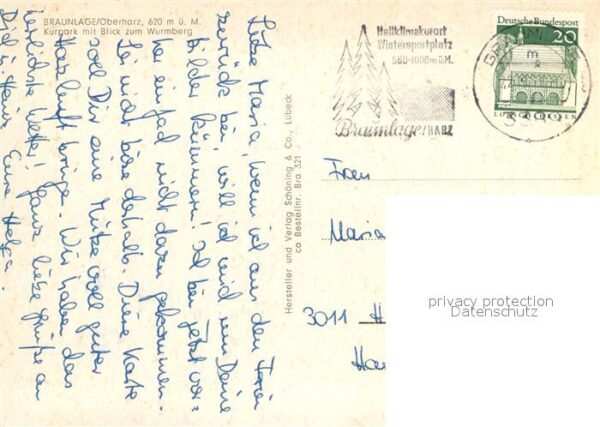 BRAUNLAGE/Oberharz, 620 m ü. M.
Kurpark mit Blick zum Wurmberg
Heilklimakurort
Wintersportplatz
560-1000m ü.M.
Braunlage/HARZ
Deutsche Bundespost
20
LORSCH/HESSEN
Liebe Maria, wenn ich aus den Ferien
zurück bin, will ich mich um Deine
Bilder kümmern! Ich bin jetzt vor-
her einfach nicht dazu gekommen.
Sei nicht böse deshalb. Diese Karte
soll Dir eine Mütze voll guter
Harzluft bringen. Wir haben das
herrlichste Wetter! Ganz liebe Grüße an
Dich u. Hans Eure Helga.
Hersteller und Verlag Schöning & Co., Lübeck
ca Bestellnr. Bra 321
Frau
Maria
3011 H
Han
privacy protection
Datenschutz